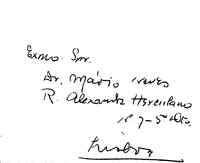 Exmo Snr.
Dr. Mário Neves
R. Alexandre Herculano
nº 7-5º Dto.
Lisboa